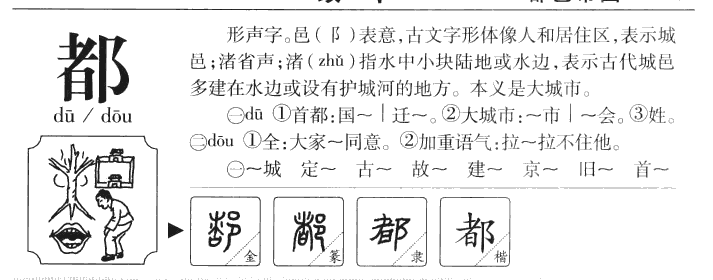 都
dū / dōu
形声字。邑(阝)表意,古文字形体像人和居住区,表示城
邑;渚省声;渚(zhǔ)指水中小块陆地或水边,表示古代城邑
多建在水边或设有护城河的地方。本义是大城市。
㊀dū ①首都:国～|迁～。②大城市:～市|～会。③姓。
㊁dōu ①全:大家～同意。②加重语气:拉～拉不住他。
㊀～城 定～ 古～ 故～ 建～ 京～ 旧～ 首～
都 金 都 篆 都 隶 都 楷